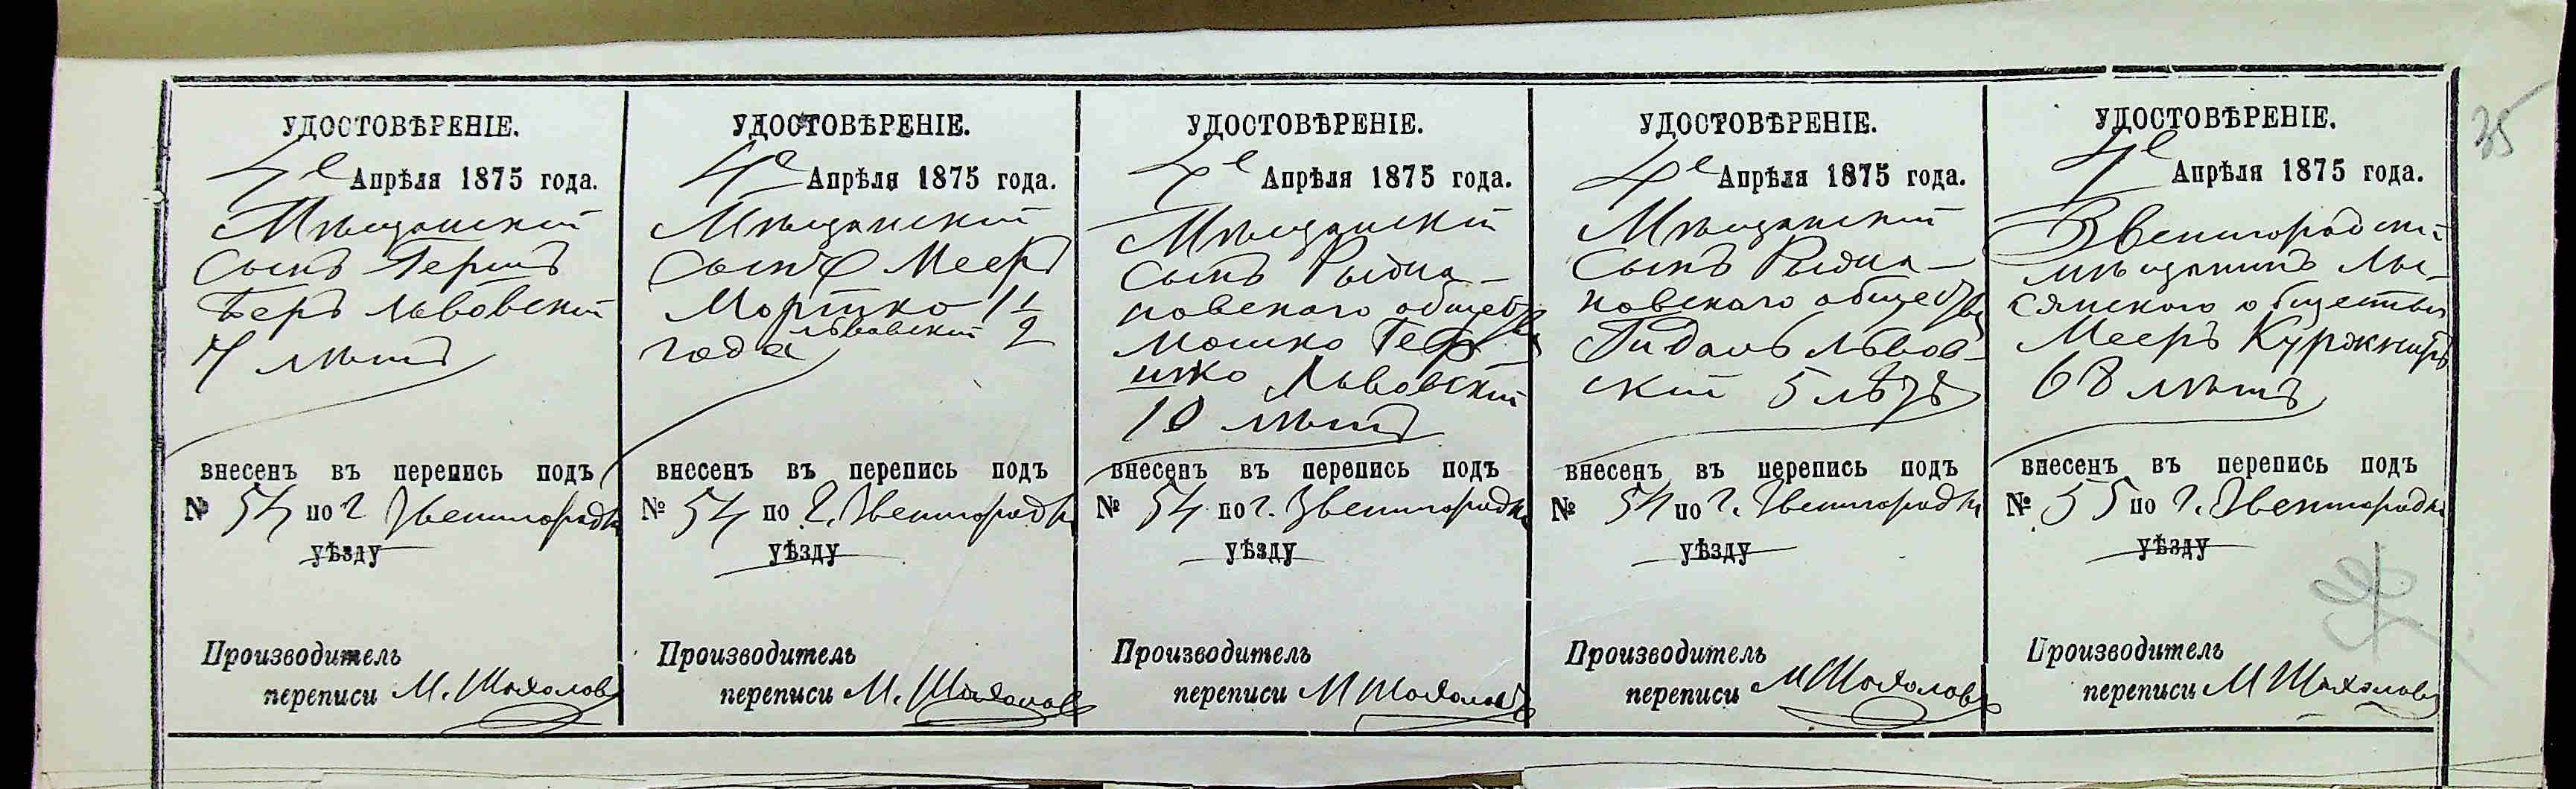 35
УДОСТОВѢРЕНІЕ.
4е Апрѣля 1875 года.
Мѣщанскій
сынъ Гершъ
Беръ Львовскій
7 лѣтъ
внесенъ въ перепись подъ
№ 54 по г Звенигородкѣ
уѣзду
Производитель
переписи М. Шахаловъ
УДОСТОВѢРЕНІЕ.
4е Апрѣля 1875 года.
Мѣщанскій
сынъ Мееръ
Мортко 1 1/2
года Львовскій
внесенъ въ перепись подъ
№ 54 по г. Звенигородкѣ
уѣзду
Производитель
переписи М. Шахаловъ
УДОСТОВѢРЕНІЕ.
4е Апрѣля 1875 года.
Мѣщанскій
сынъ Рыжа-
новскаго общества
Мошко Гер
шко Львовскій
10 лѣтъ
внесенъ въ перепись подъ
№ 54 по г. Звенигородкѣ
уѣзду
Производитель
переписи М Шахаловъ
УДОСТОВѢРЕНІЕ.
4е Апрѣля 1875 года.
Мѣщанскій
сынъ Рыжа-
новскаго общества
Гидаль Львов-
скій 5 лѣтъ
внесенъ въ перепись подъ
№ 54 по г. Звенигородкѣ
уѣзду
Производитель
переписи М Шахаловъ
УДОСТОВѢРЕНІЕ.
4е Апрѣля 1875 года.
Звенигородскій
мѣщанинъ Лы-
сянского общества
Мееръ Куржнеръ
68 лѣтъ
внесенъ въ перепись подъ
№ 55 по г. Звенигородкѣ
уѣзду
Производитель
переписи М Шахаловъ